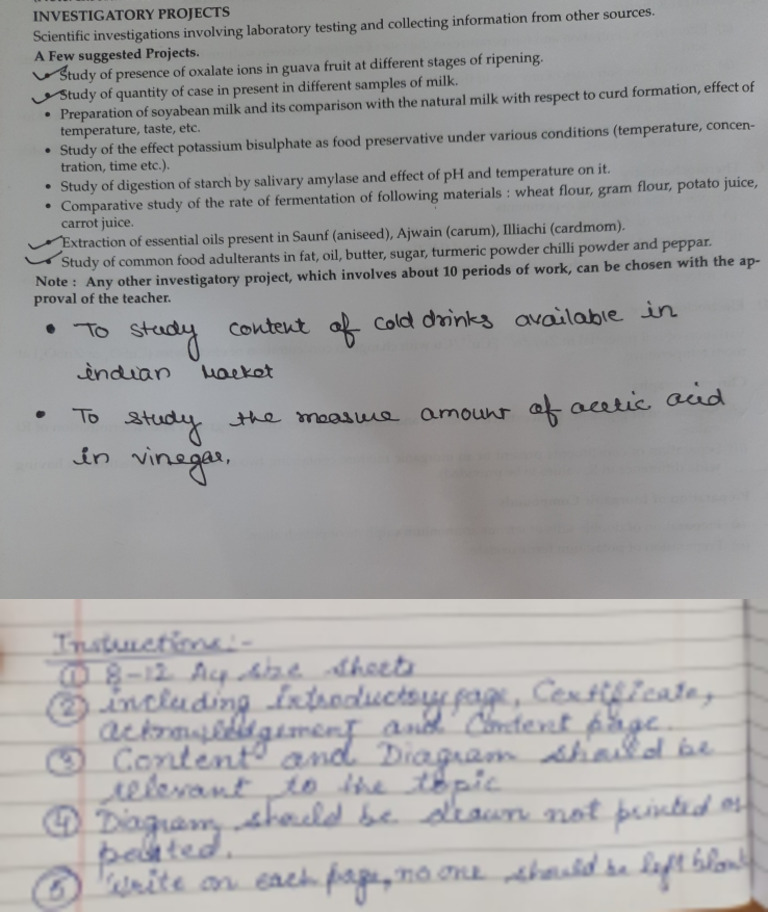 INVESTIGATORY PROJECTS
Scientific investigations involving laboratory testing and collecting information from other sources.
A Few suggested Projects.
Study of presence of oxalate ions in guava fruit at different stages of ripening.
Study of quantity of case in present in different samples of milk.
• Preparation of soyabean milk and its comparison with the natural milk with respect to curd formation, effect of
temperature, taste, etc.
• Study of the effect potassium bisulphate as food preservative under various conditions (temperature, concen-
tration, time etc.).
• Study of digestion of starch by salivary amylase and effect of pH and temperature on it.
• Comparative study of the rate of fermentation of following materials : wheat flour, gram flour, potato juice,
carrot juice.
Extraction of essential oils present in Saunf (aniseed), Ajwain (carum), Illiachi (cardmom).
Study of common food adulterants in fat, oil, butter, sugar, turmeric powder chilli powder and peppar.
Note : Any other investigatory project, which involves about 10 periods of work, can be chosen with the ap-
proval of the teacher.
• To study content of cold drinks available in
indian market
• To study the measure amount of acetic acid
in vinegar.
Instructions:-
① 8-12 A4 size sheets
② including introductory page, Certificate,
acknowledgement and Content page.
③ Content and Diagram should be
relevant to the topic
④ Diagram should be drawn not printed or
pasted.
⑤ Write on each page, no one should be left blank